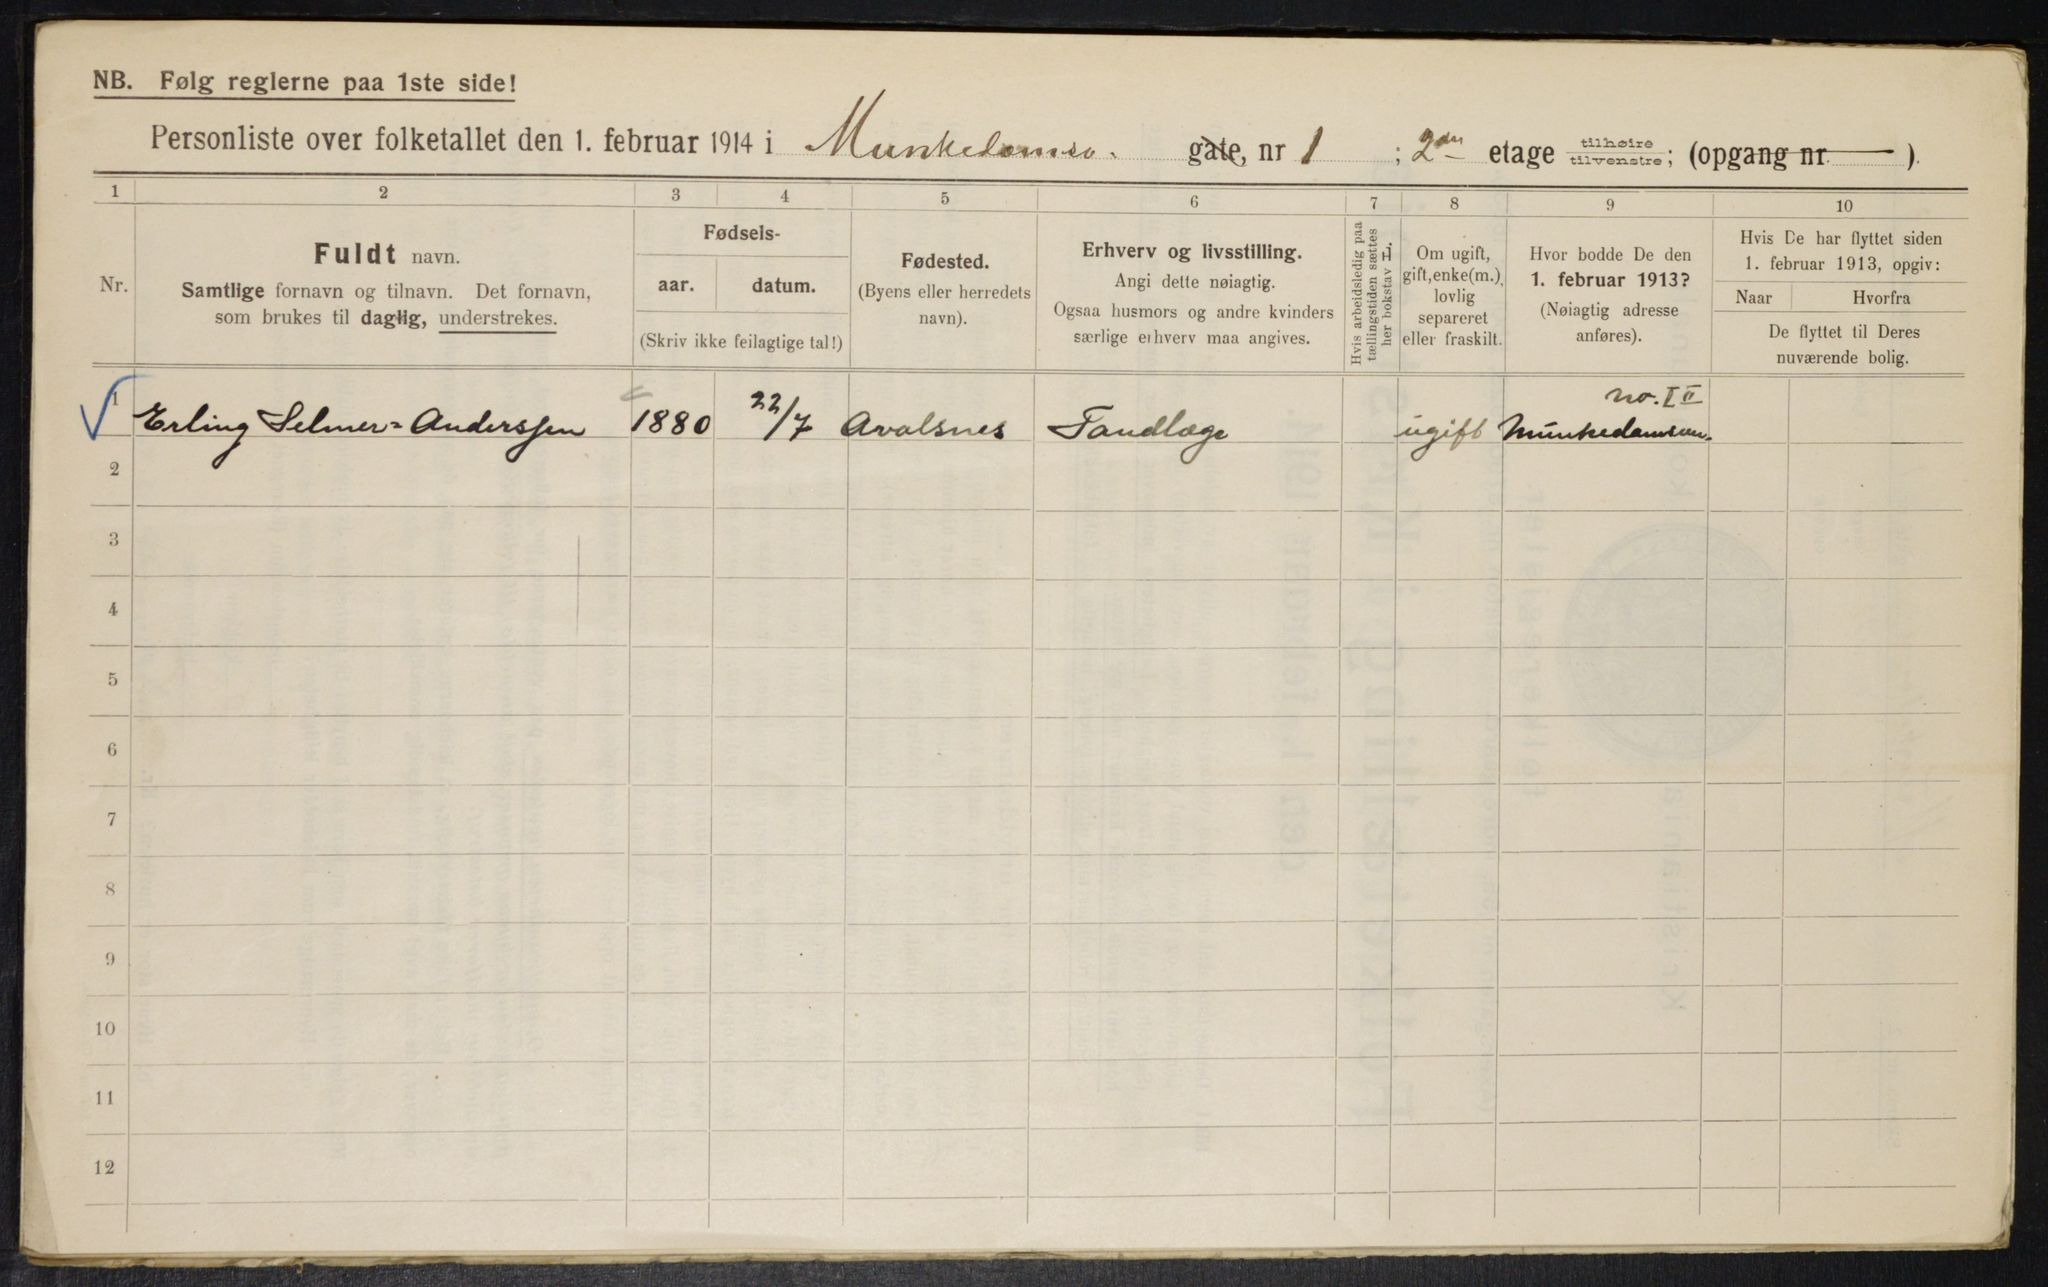 NB. Følg reglerne paa 1ste side!
Personliste over folketallet den 1. februar 1914 i Munkedamsv. gate, nr 1 ; 2den etage tilhøire tilvenstre; (opgang nr. ).
1 2 3 4 5 6 7 8 9 10
Nr.
Fuldt navn.
Samtlige fornavn og tilnavn. Det fornavn,
som brukes til daglig, understrekes.
Fødsels-
aar. datum.
(Skriv ikke feilagtige tal!)
Fødested.
(Byens eller herredets
navn).
Erhverv og livsstilling.
Angi dette nøiagtig.
Ogsaa husmors og andre kvinders
særlige erhverv maa angives.
Hvis arbeidsledig paa
tællingstiden sættes
her bokstav L.
Om ugift,
gift, enke(m.),
lovlig
separeret
eller fraskilt.
Hvor bodde De den
1. februar 1913?
(Nøiagtig adresse
anføres).
Hvis De har flyttet siden
1. februar 1913, opgiv:
Naar Hvorfra
De flyttet til Deres
nuværende bolig.
no. I II
1 Erling Selmer=Anderssen 1880 22/7 Avalsnes Tandlæge ugift Munkedamsven.
2
3
4
5
6
7
8
9
10
11
12